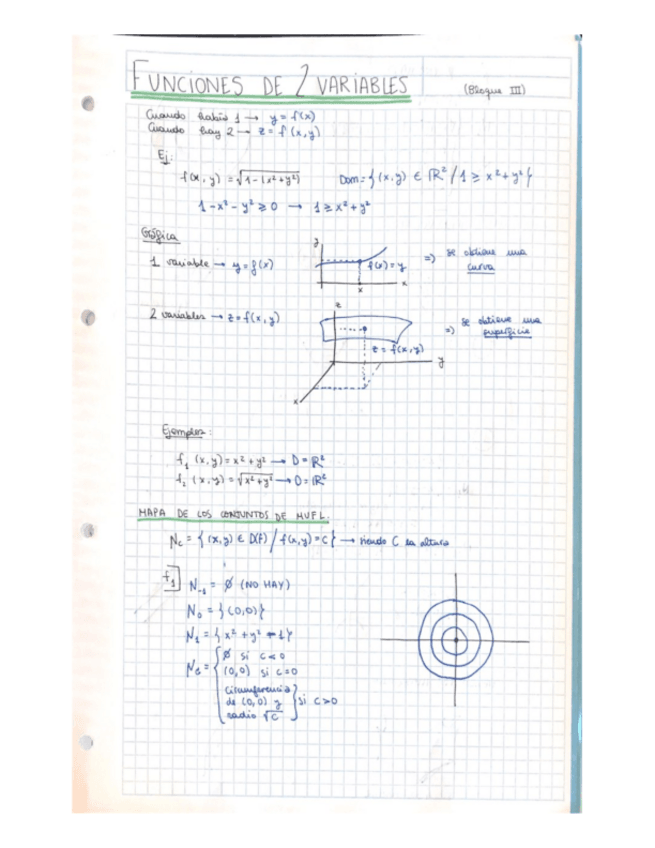 FUNCIONES DE 2 VARIABLES (Bloque III)
Cuando había 1 → y = f(x)
Cuando hay 2 → z = f(x,y)
Ej:
f(x,y) = √1-(x²+y²) Dom = {(x,y) ∈ ℝ² / 1 ≥ x²+y²}
1-x²-y² ≥ 0 → 1 ≥ x²+y²
Gráfica
1 variable → y = f(x)
y
f(x) = y
x
x
⇒ se obtiene una curva
2 variables → z = f(x,y)
z
z = f(x,y)
y
x
⇒ se obtiene una superficie
Ejemplos:
f₁ (x,y) = x²+y² → D = ℝ²
f₂ (x,y) = √x²+y² → D = ℝ²
MAPA DE LOS CONJUNTOS DE NIVEL.
N_c = {(x,y) ∈ D(f) / f(x,y) = C} → siendo C la altura
f₁
N₋₁ = ∅ (NO HAY)
N₀ = {(0,0)}
N₁ = {x²+y² = 1}
∅ si c<0
(0,0) si c=0
circunferencia
de (0,0) y
radio √c
si c>0